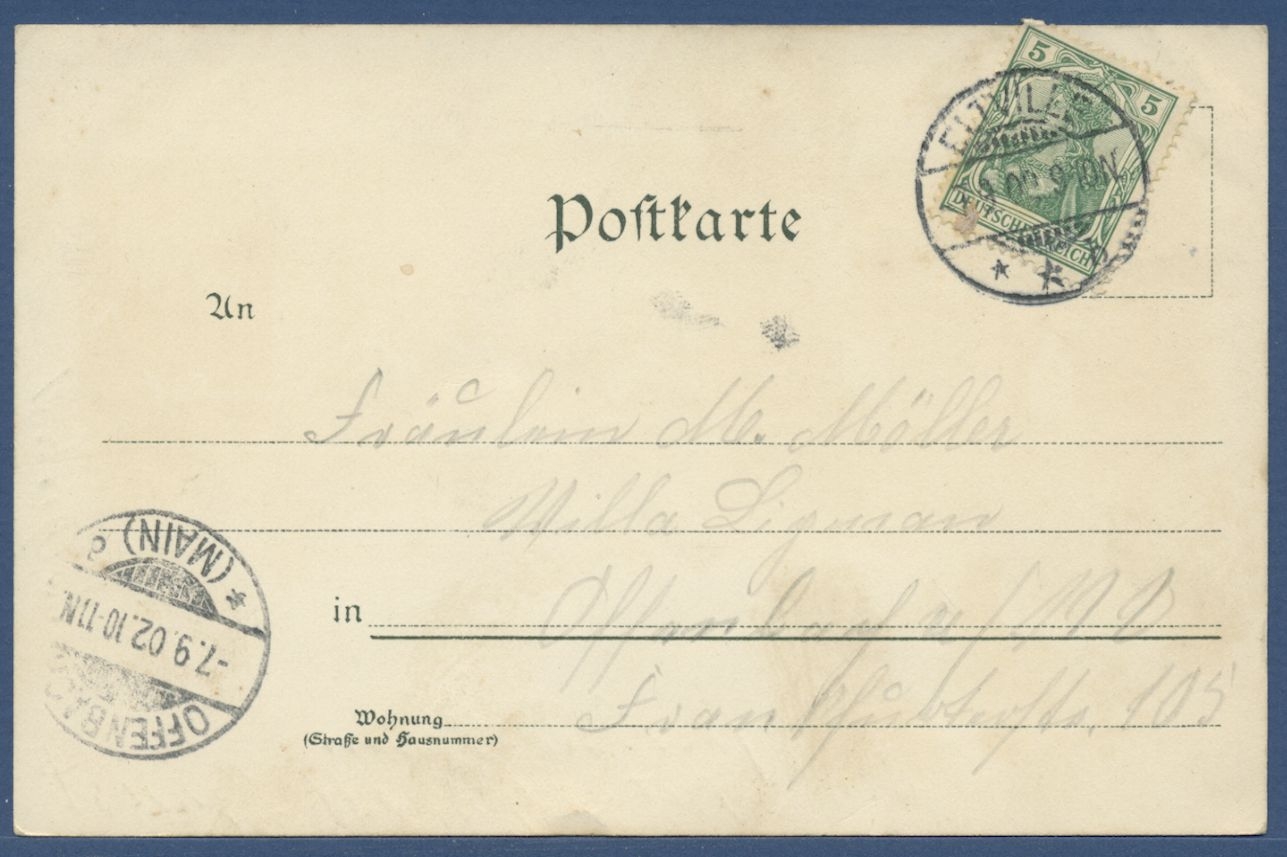 5 5
DEUTSCHES REICH
ELTVILLE
9.02. 9-10N.
Poſtkarte
An
Fräulein M. Möller
Villa
in Offenbach a/M
Wohnung Frankfurterstr. 105
(Straße und Hausnummer)
OFFENBACH
-7.9.02.10-11N.
* (MAIN)